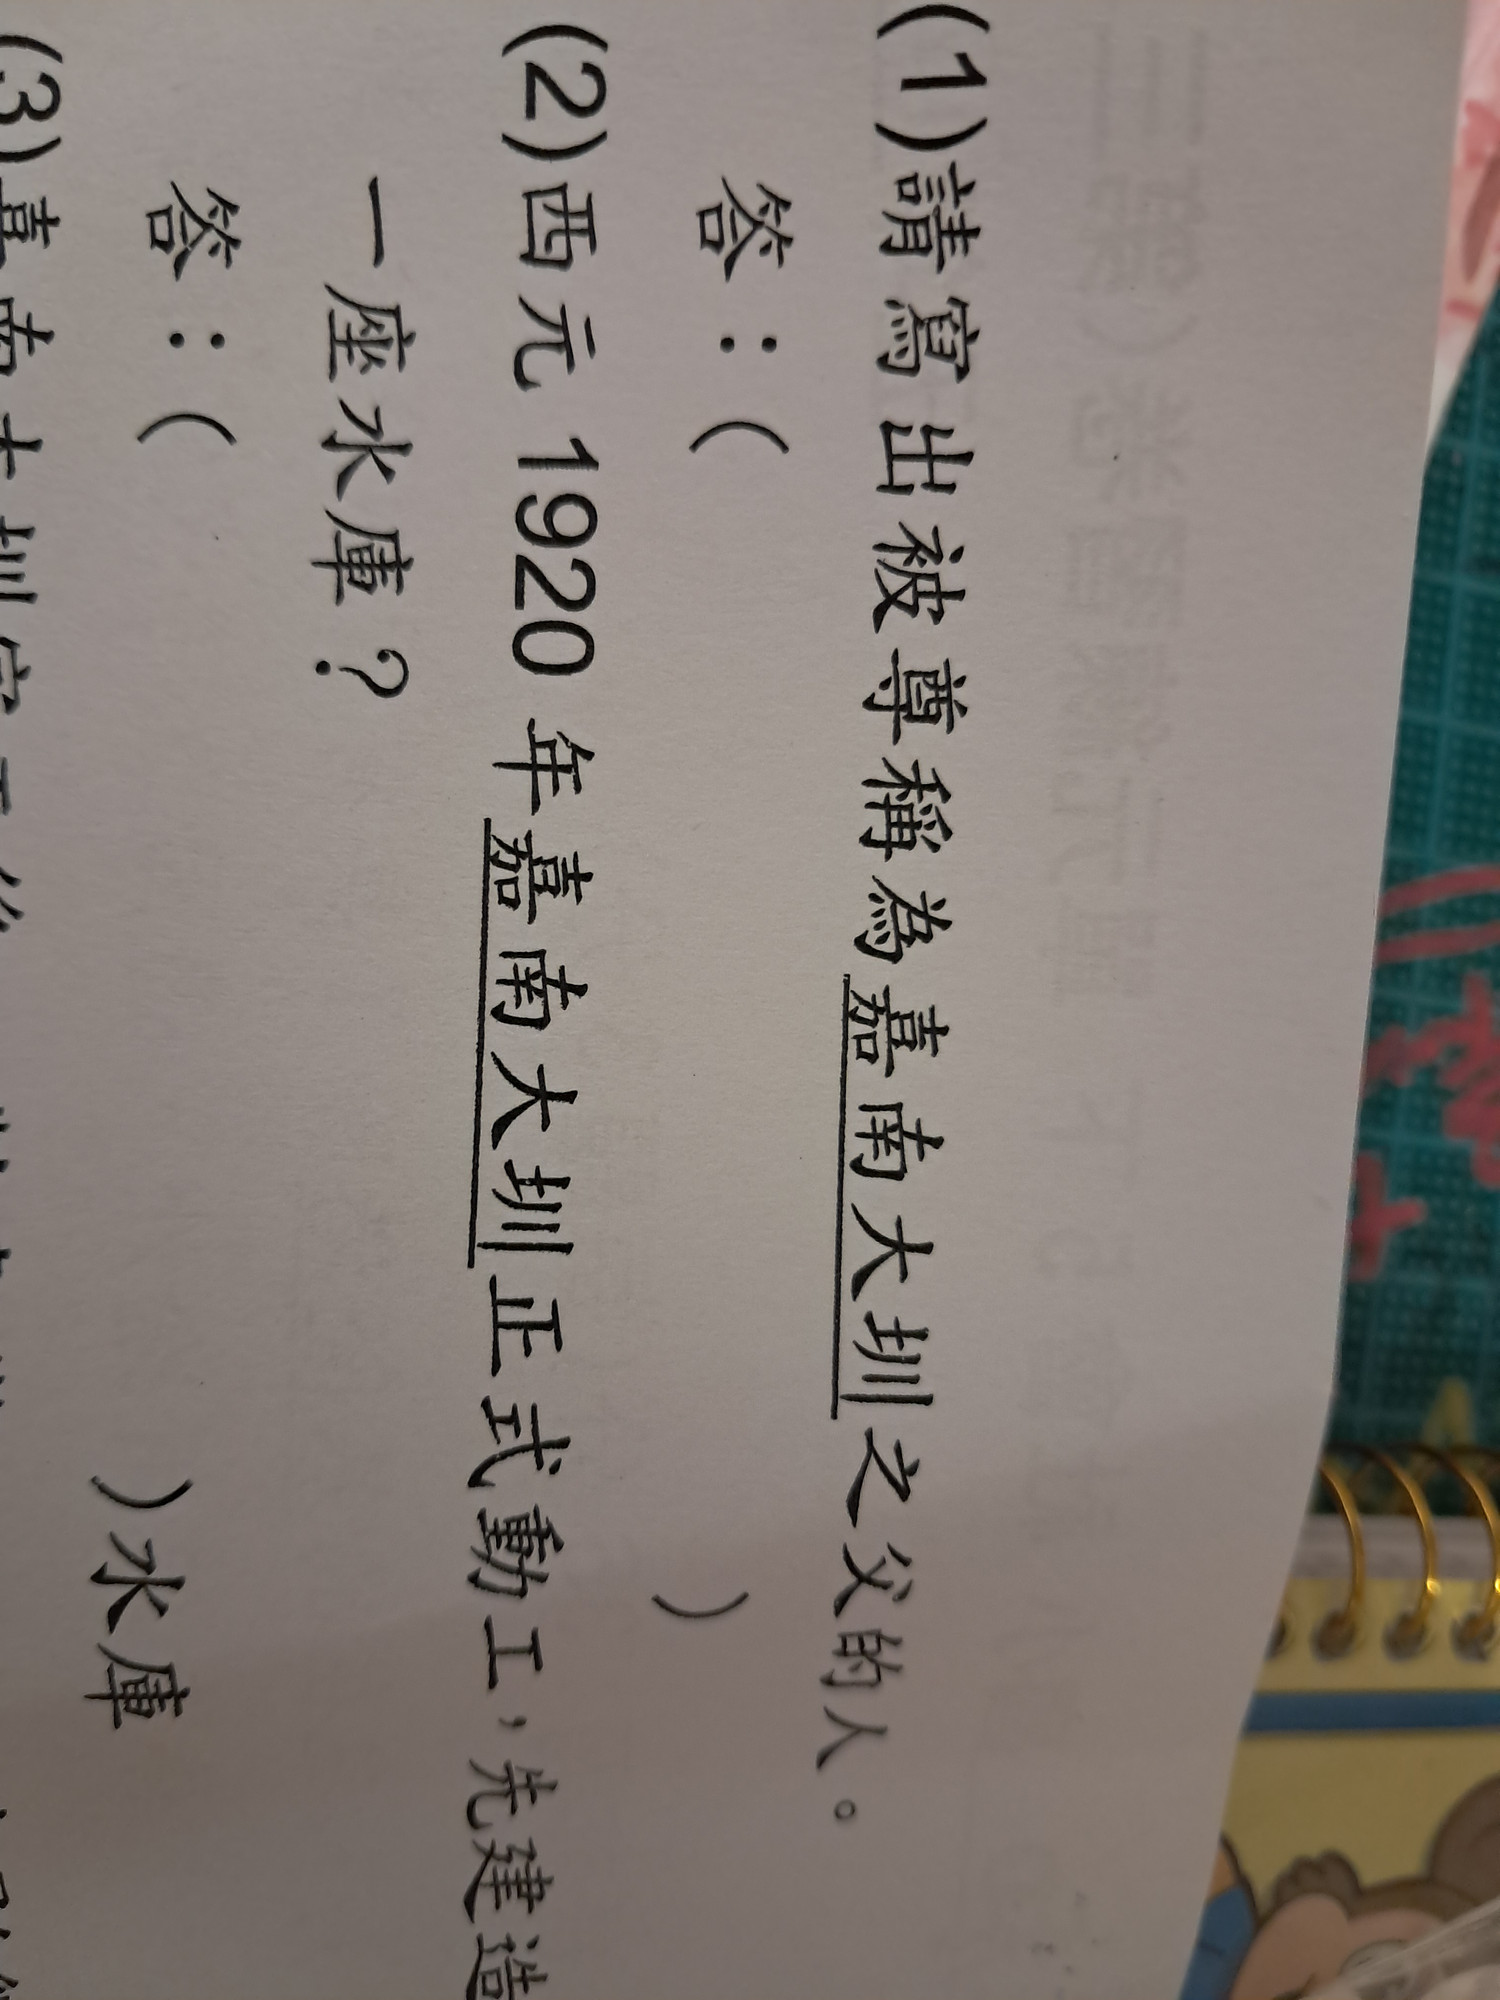 (1)請寫出被尊稱為嘉南大圳之父的人。
答：（　　　）
(2)西元 1920 年嘉南大圳正式動工，先建造
一座水庫？
答：（　　　）水庫
(3)嘉南大圳完工後